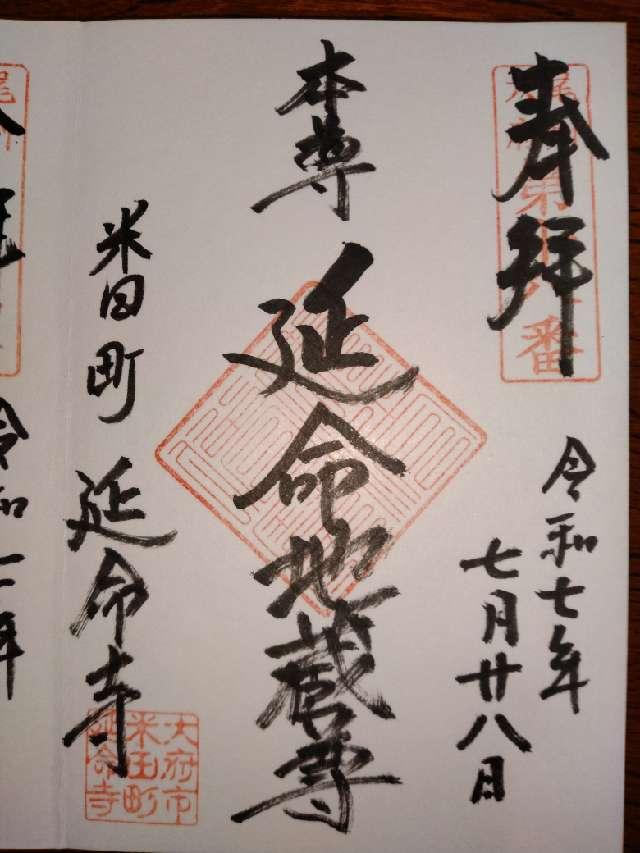 奉拝
令和七年
七月廿八日
本尊
延命地蔵尊
米田町 延命寺
大府市
米田町
延命寺